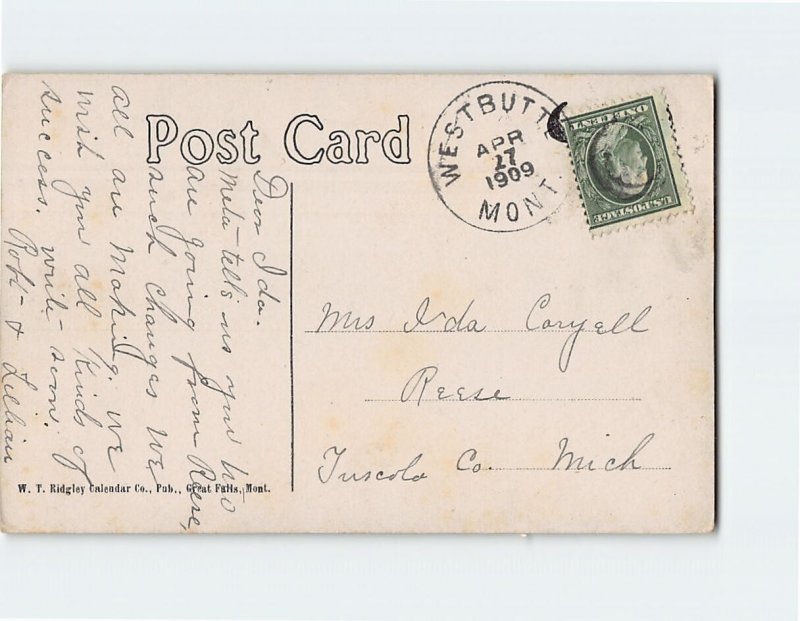 Post Card
WESTBUTTE
APR
27
1909
MONT.
ONE CENT
U.S. POSTAGE
Dear Ida.
Meta-tells us you two
are going from Reese,
such changes we
all are Making. we
wish you all kinds of
success. write-soon.
Robt- & Lillian
Mrs Ida Coryell
Reese
Tuscola Co. Mich
W. T. Ridgley Calendar Co., Pub., Great Falls, Mont.